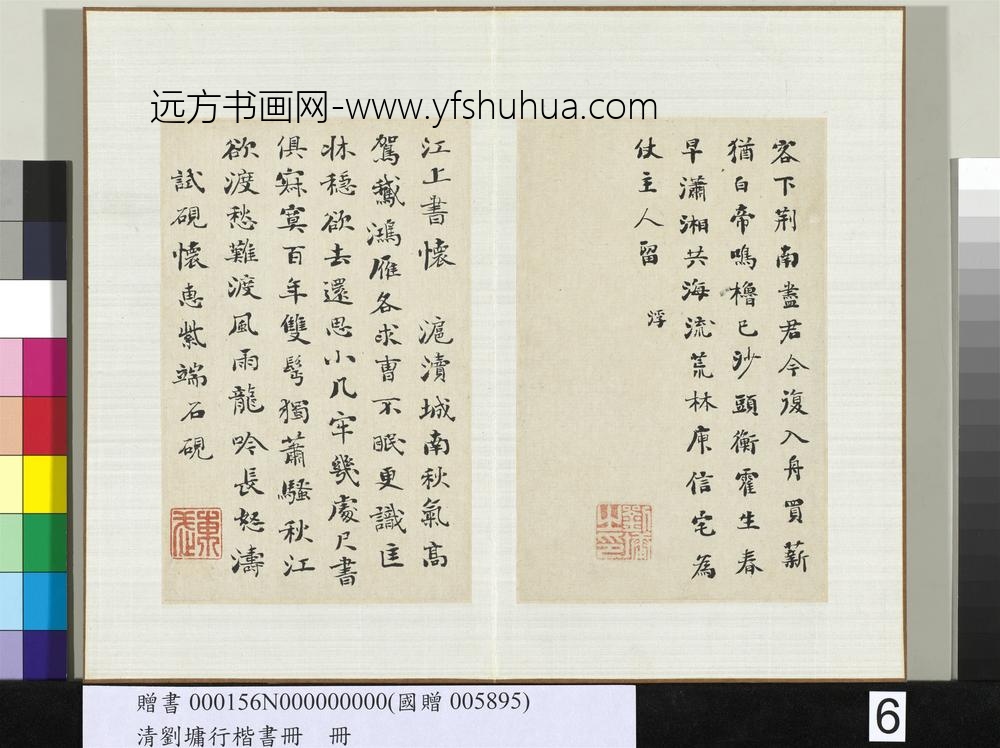 远方书画网-www.yfshuhua.com
客下荆南盡君今復入舟買薪
猶白帝鳴櫓已沙頭衡霍生春
早瀟湘共海流荒林庾信宅為
仗主人留　浮
江上書懷　滬瀆城南秋氣高
駕鵝鴻雁各求曹不眠更識匡
牀穩欲去還思小几牢幾處尺書
俱寂寞百年雙髩獨蕭騷秋江
欲渡愁難渡風雨龍吟長怒濤
試硯懷惠紫端石硯
劉墉之印
東武
贈書 000156N000000000(國贈 005895)
清劉墉行楷書冊　冊
6